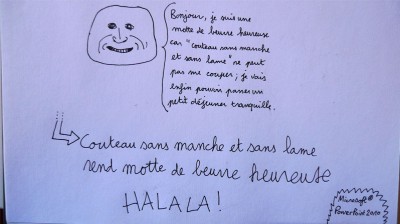 Bonjour, je suis une
motte de beurre heureuse
car "couteau sans manche
et sans lame" ne peut
pas me couper ; je vais
enfin pouvoir passer un
petit déjeuner tranquille.
Couteau sans manche et sans lame
rend motte de beurre heureuse
HALALA !
Microsoft®
PowerPoint 2000